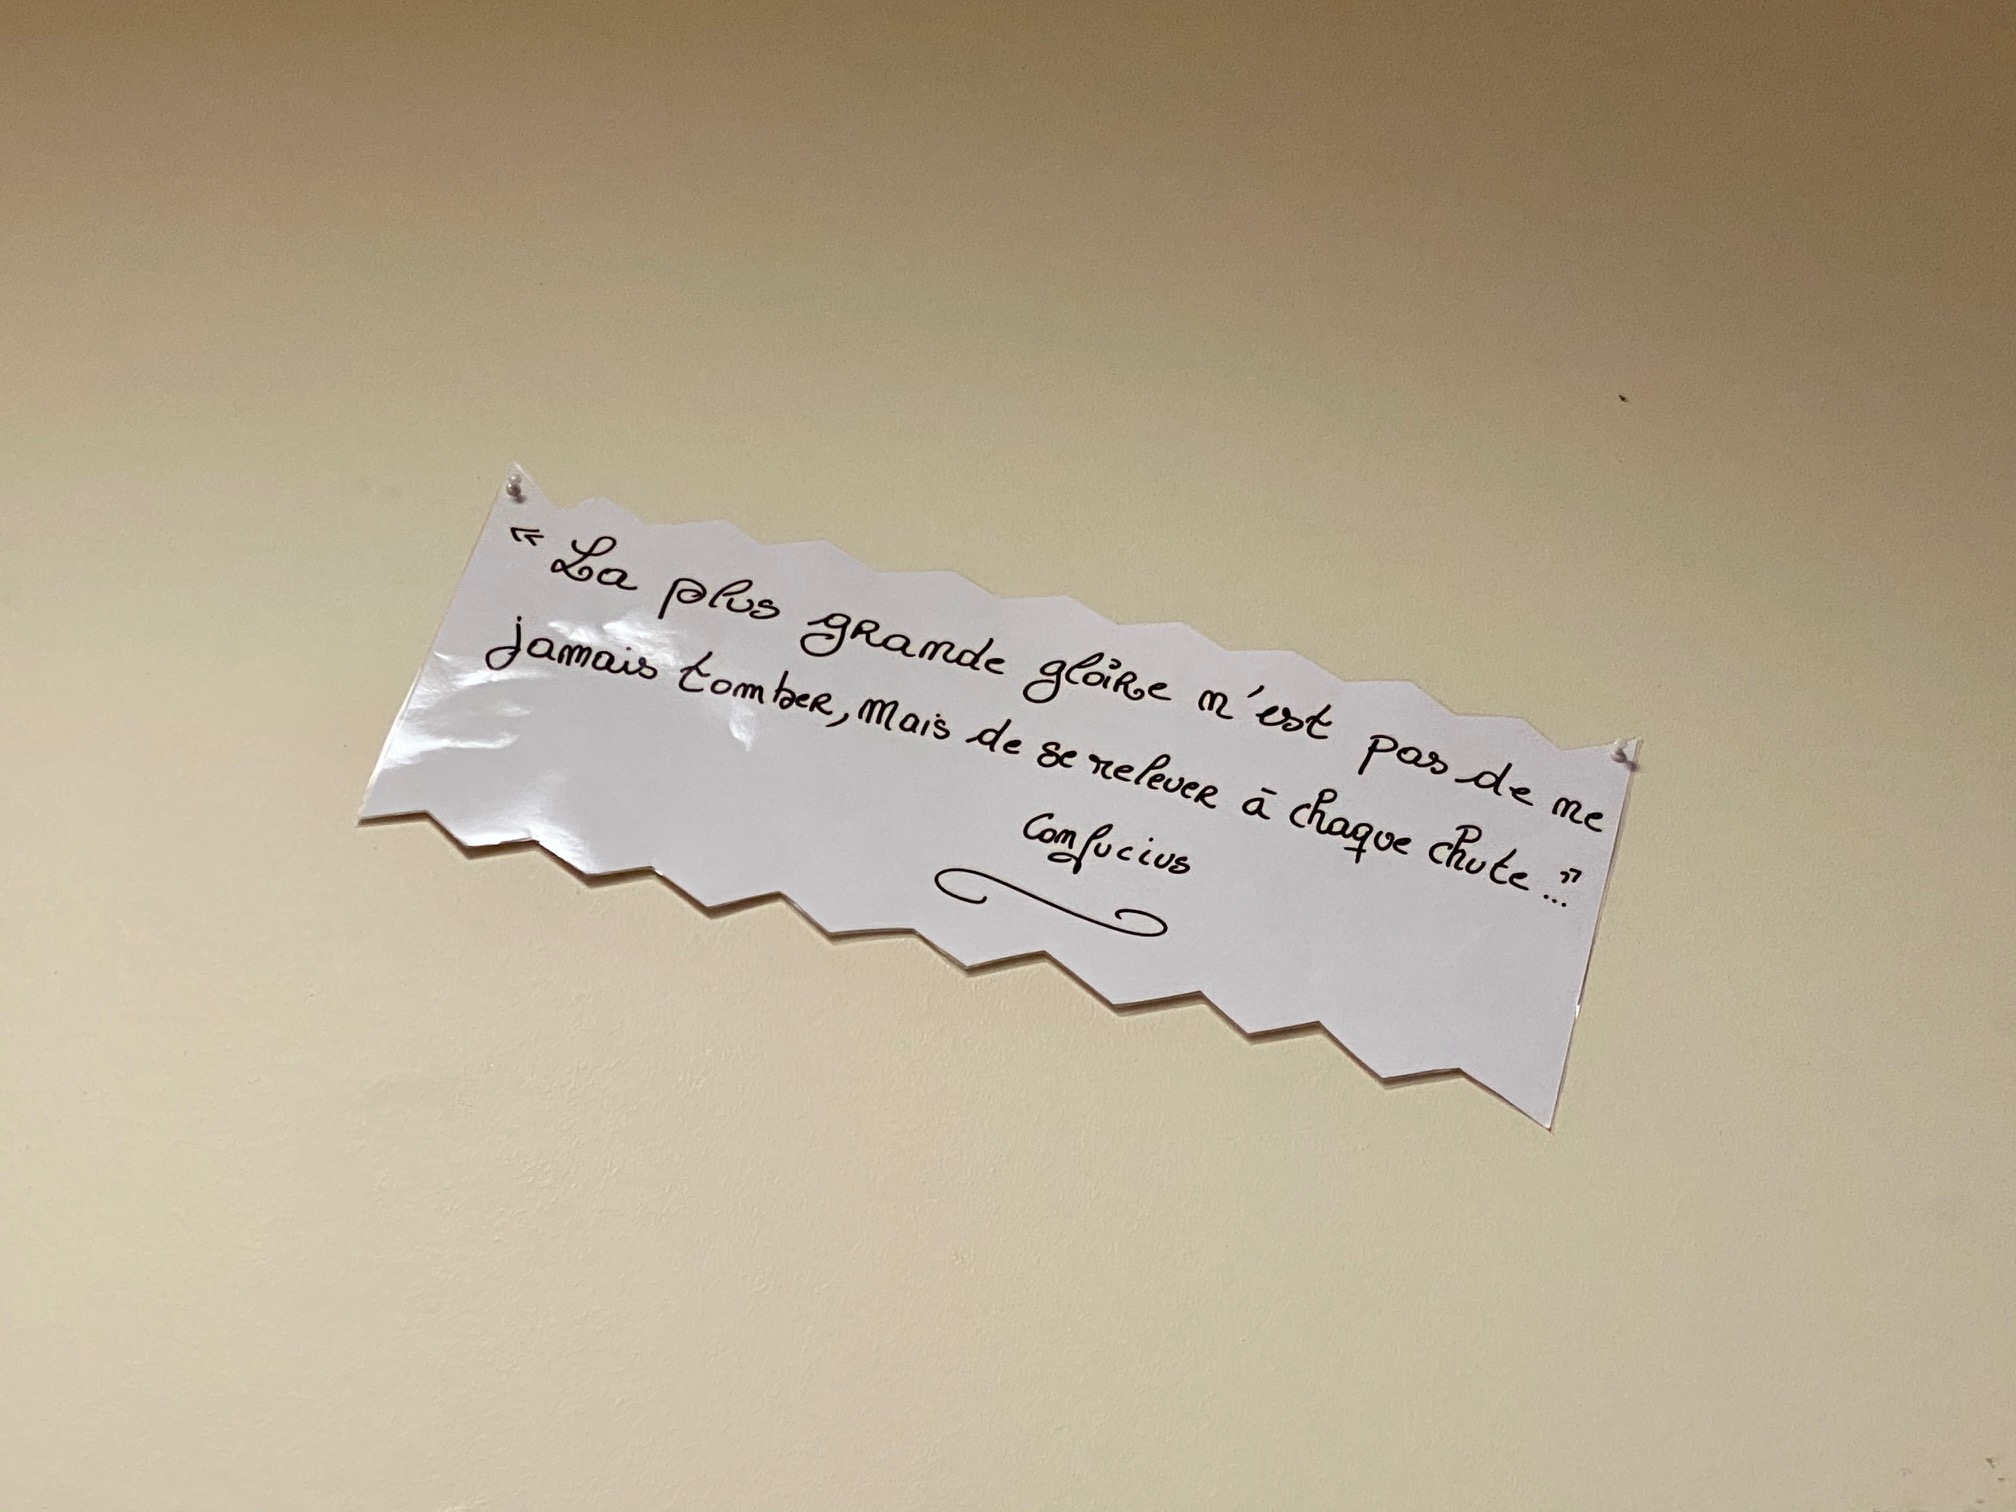 « La plus grande gloire n'est pas de ne
jamais tomber, mais de se relever à chaque chute... »
Confucius